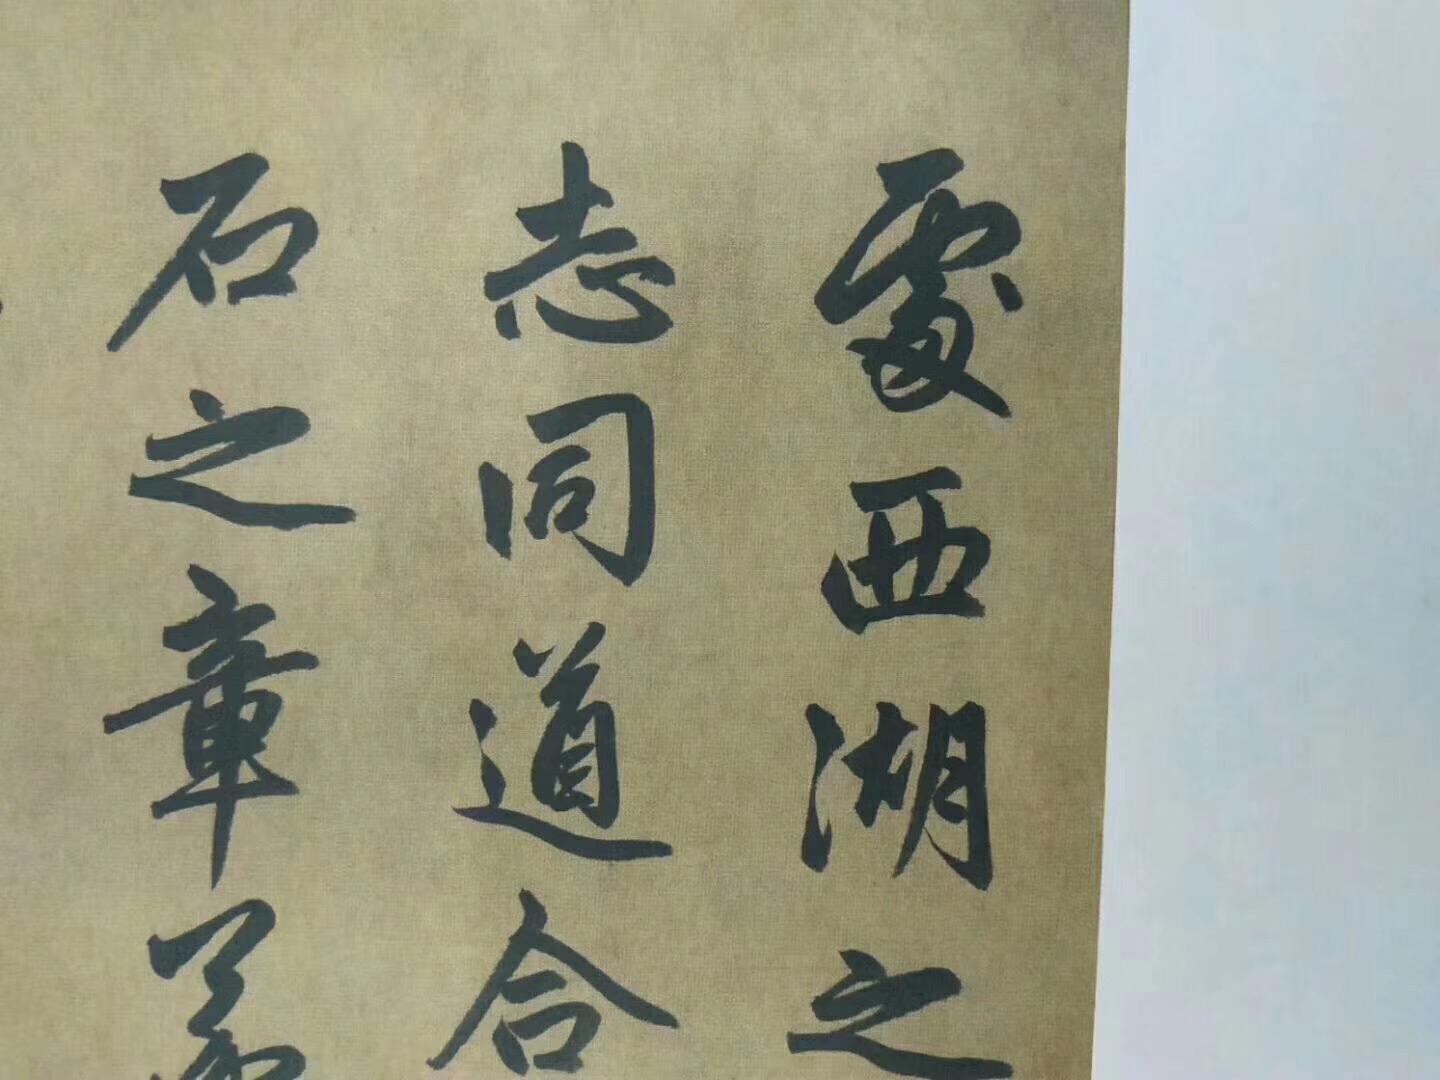 處西湖之
志同道合
石之章